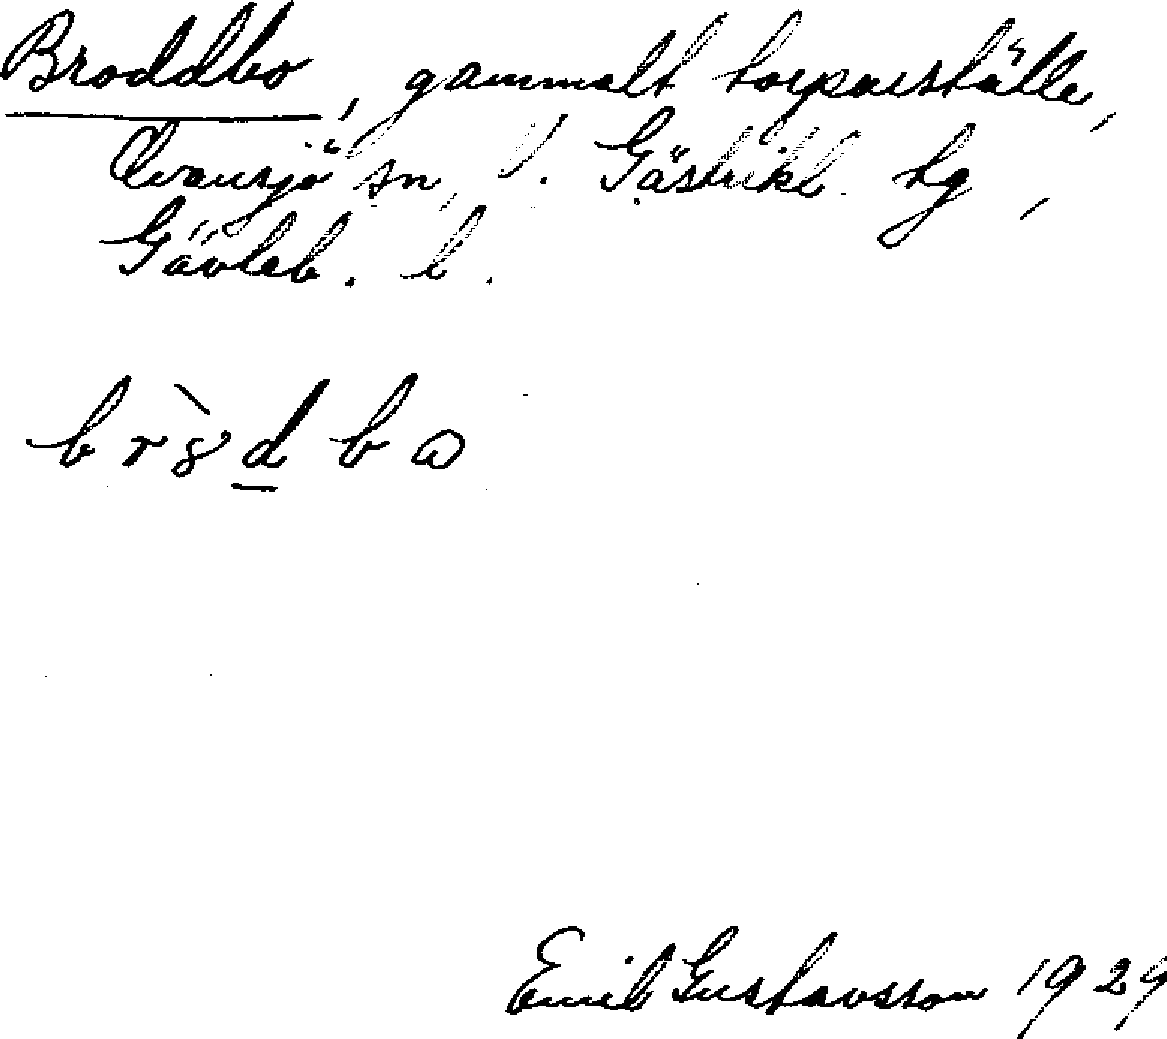 Broddbo, gammalt torparställe,
Ovansjö sn, V. Gästrikl. tg,
Gävleb. l.
br8̀d̲bɷ
Emil Gustavsson 1929